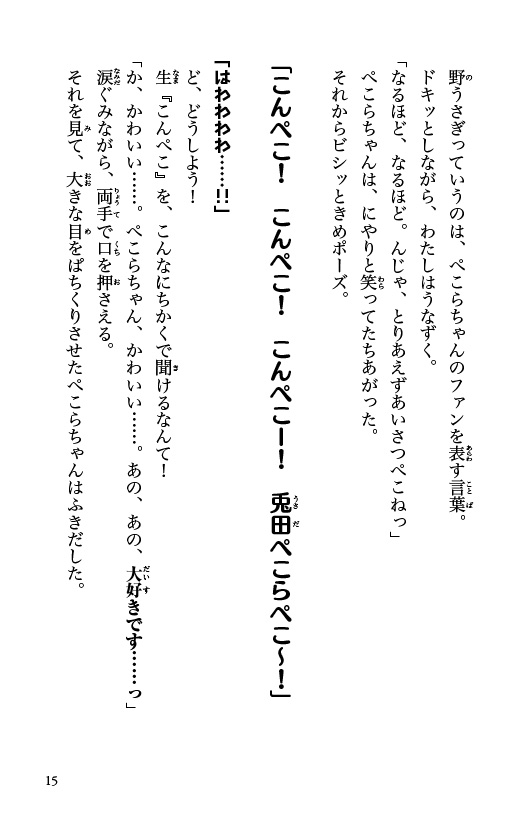 野うさぎっていうのは、ぺこらちゃんのファンを表す言葉。
ドキッとしながら、わたしはうなずく。
「なるほど、なるほど。んじゃ、とりあえずあいさつぺこねっ」
ぺこらちゃんは、にやりと笑ってたちあがった。
それからビシッときめポーズ。
「こんぺこ！　こんぺこ！　こんぺこー！　兎田ぺこらぺこ〜！」
「はわわわわ……!!」
ど、どうしよう！
生『こんぺこ』を、こんなにちかくで聞けるなんて！
「か、かわいい……。ぺこらちゃん、かわいい……。あの、あの、大好きです……っ」
涙ぐみながら、両手で口を押さえる。
それを見て、大きな目をぱちくりさせたぺこらちゃんはふきだした。
15